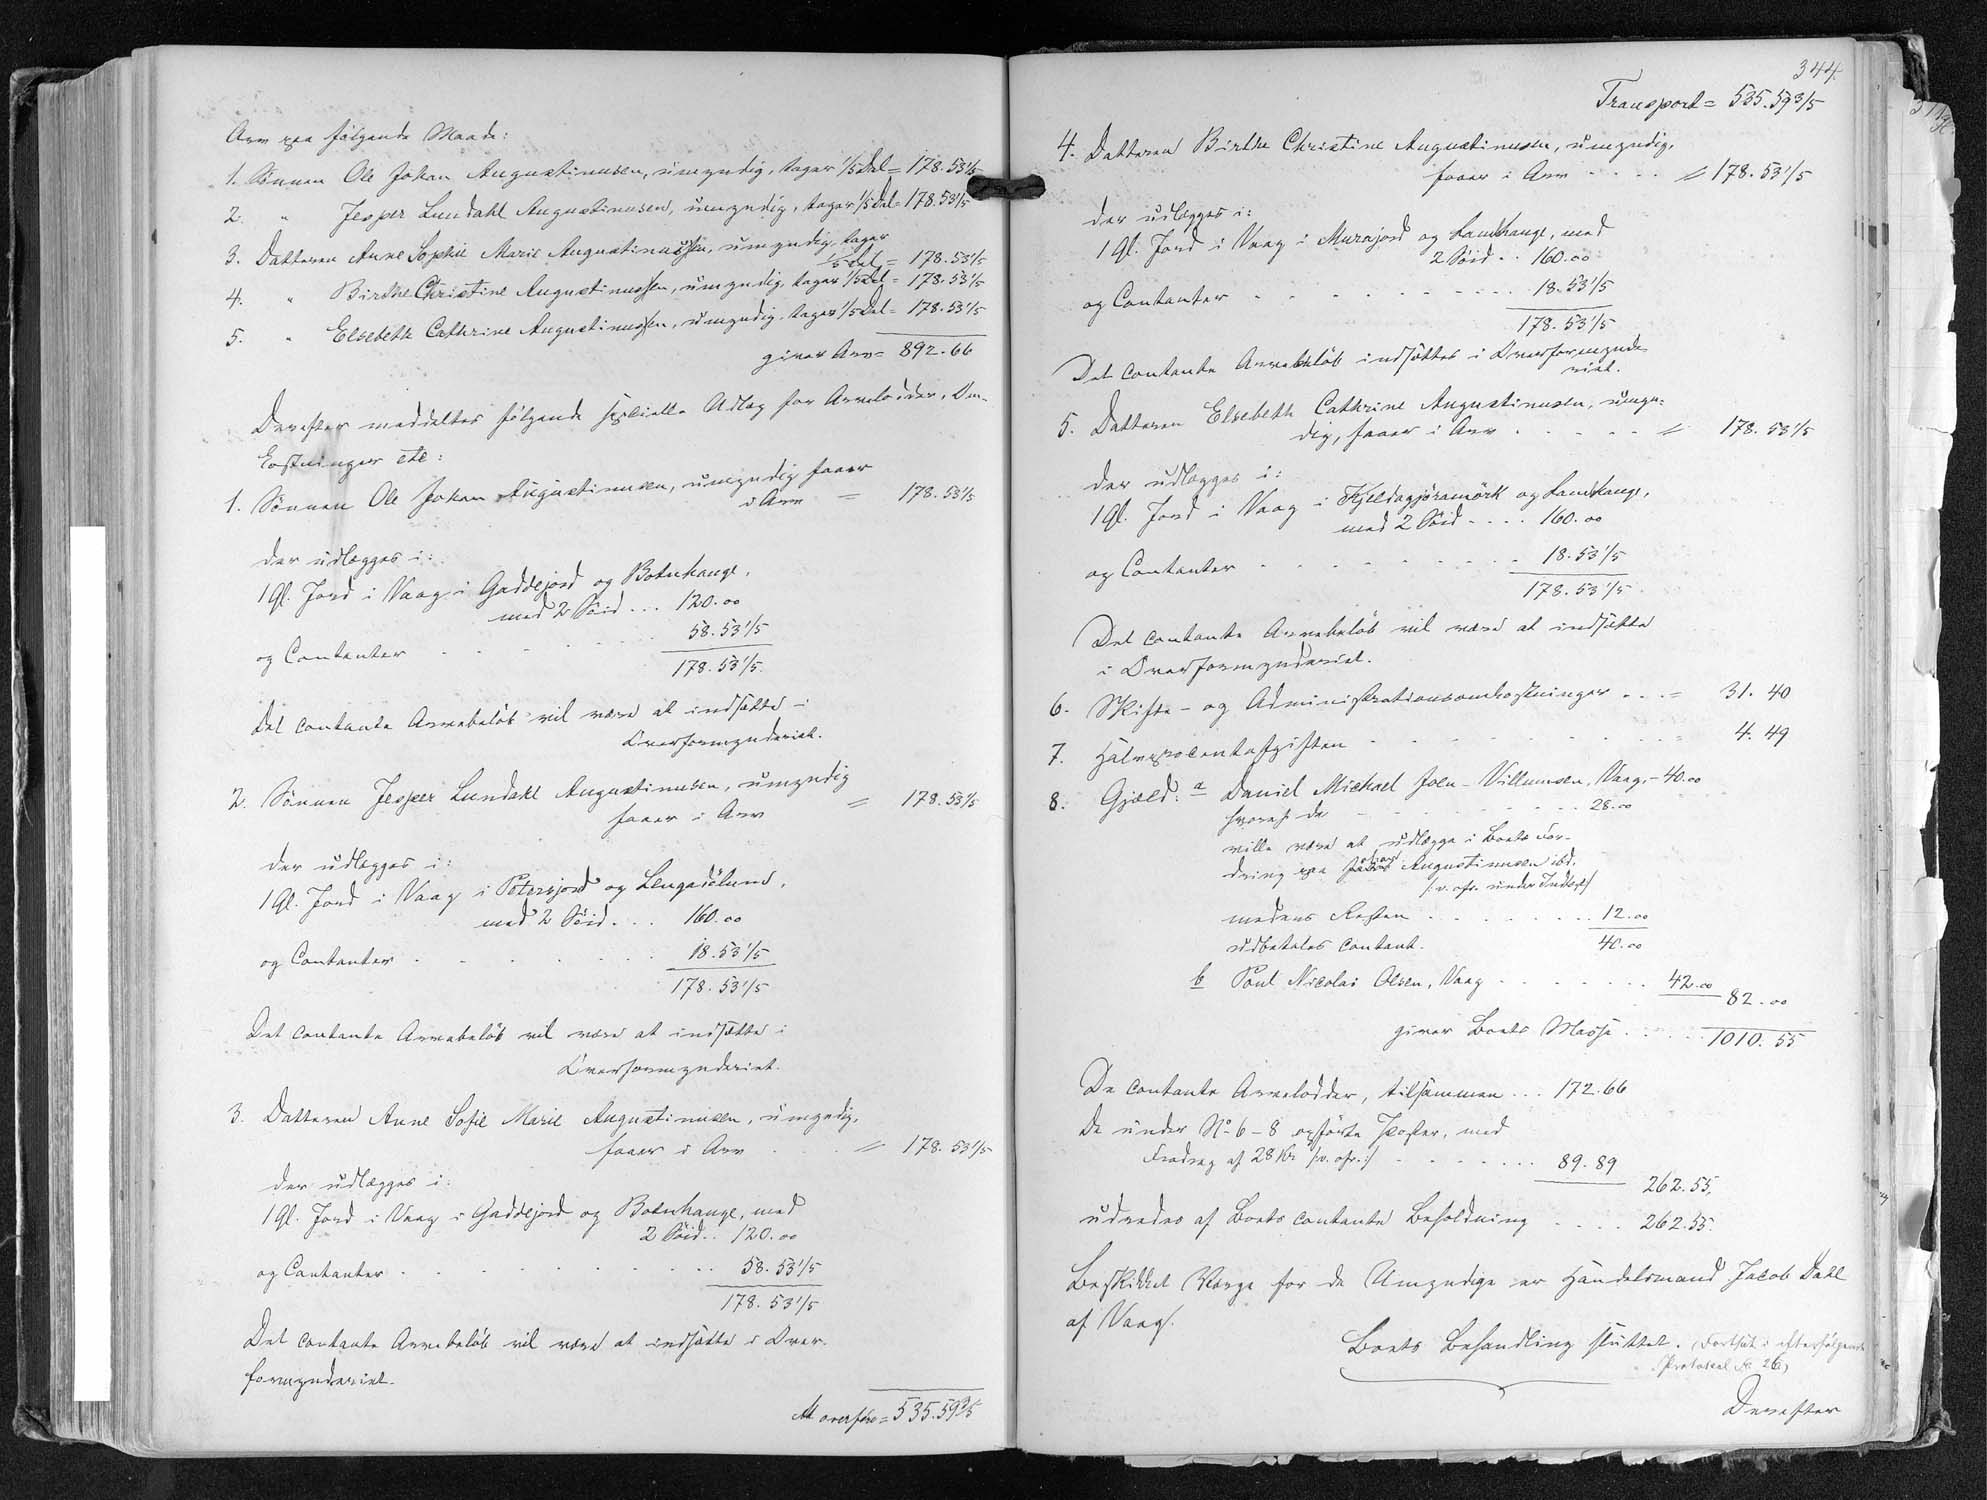 Arv paa følgende Maade:
1. Sønnen Ole Johan Augustinussen, umyndig, tager 1/5 Del = 178.53 1/5
2. " Jesper Lundahl Augustinusen, umyndig, tager 1/5 Del = 178.53 1/5
3. Datteren Anne Sophie Marie Augustinussen, umyndig, tager
1/5 Del = 178.53 1/5
4. " Birthe Christine Augustinussen, umyndig, tager 1/5 Del = 178.53 1/5
5. " Elsebeth Cathrine Augustinussen, umyndig, tager 1/5 Del = 178.53 1/5
giver Arv = 892.66
Derefter meddeltes følgende specielle Udlæg for Arvelodder, Om-
kostninger etc:
1. Sønnen Ole Johan Augustinusen, umyndig faaer
i Arv = 178.53 1/5
der udlægges i:
1 Gl. Jord i Vaag i Gaddejord og Botnhauge,
med 2 Söid ... 120.00
og Contanter . . . . 58.53 1/5
178.53 1/5
Det contante Arvebeløb vil være at indsætte i
Overformynderiet.
2. Sønnen Jesper Lundahl Augustinusen, umyndig
faaer i Arv = 178.53 1/5
der udlægges i:
1 Gl. Jord i Vaag i Petersjord og Lengasölund,
med 2 Söid ... 160.00
og Contanter . . . . 18.53 1/5
178.53 1/5
Det contante Arvebeløb vil være at indsætte i
Overformynderiet.
3. Datteren Anne Sofie Marie Augustinusen, umyndig,
faaer i Arv . . . = 178.53 1/5
der udlægges i:
1 Gl. Jord i Vaag i Gaddejord og Botnhauge, med
2 Söid .. 120.00
og Contanter . . . . 58.53 1/5
178.53 1/5
Det contante Arvebeløb vil være at indsætte i Over-
formynderiet.
At overføre = 535.59 3/5
344.
Transport = 535.59 3/5
4. Datteren Birthe Christine Augustinusen, umyndig,
faaer i Arv . . . . = 178.53 1/5
der udlægges i:
1 Gl. Jord i Vaag i Murajord og Lambhauge, med
2 Söid .. 160.00
og Contanter . . . . 18.53 1/5
178.53 1/5
Det contante Arvebeløb indsættes i Overformynde-
riet.
5. Datteren Elsebeth Cathrine Augustinusen, umyn-
dig, faaer i Arv . . . . = 178.53 1/5
der udlægges i:
1 Gl. Jord i Vaag i Kjeldagjóramörk og Lambhauge,
med 2 Söid .... 160.00
og Contanter . . . . 18.53 1/5
178.53 1/5
Det contante Arvebeløb vil være at indsætte
i Overformynderiet.
6. Skifte- og Administrationsomkostninger ... = 31.40
7. Halvprocentafgiften . . . . = 4.49
8. Gjæld: a Daniel Michael Joen-Villumsen, Vaag, - 40.00
hvoraf de . . . . 28.00
ville være at udlægge i Boets For-
dring paa Johan Augustinusen ibd.
/: v. ofr. under Indtægt/
medens Resten . . . . 12.00
udbetales contant. 40.00
b Poul Nicolai Olsen, Vaag . . . . 42.00
82.00
giver Boets Masse . . . . 1010.55
De contante Arvelodder, tilsammen ... 172.66
De under No 6-8 opførte Poster, med
Fradrag af 28 Kr /:v. ofr.:/ . . . . 89.89
262.55,
udredes af Boets contante Beholdning .... 262.55.
Beskikket Værge for de Umyndige er Handelsmand Jacob Dahl
af Vaag.
Boets Behandling sluttet. (Fortsat i efterfølgende
Protokol Fo 26)
Derefter